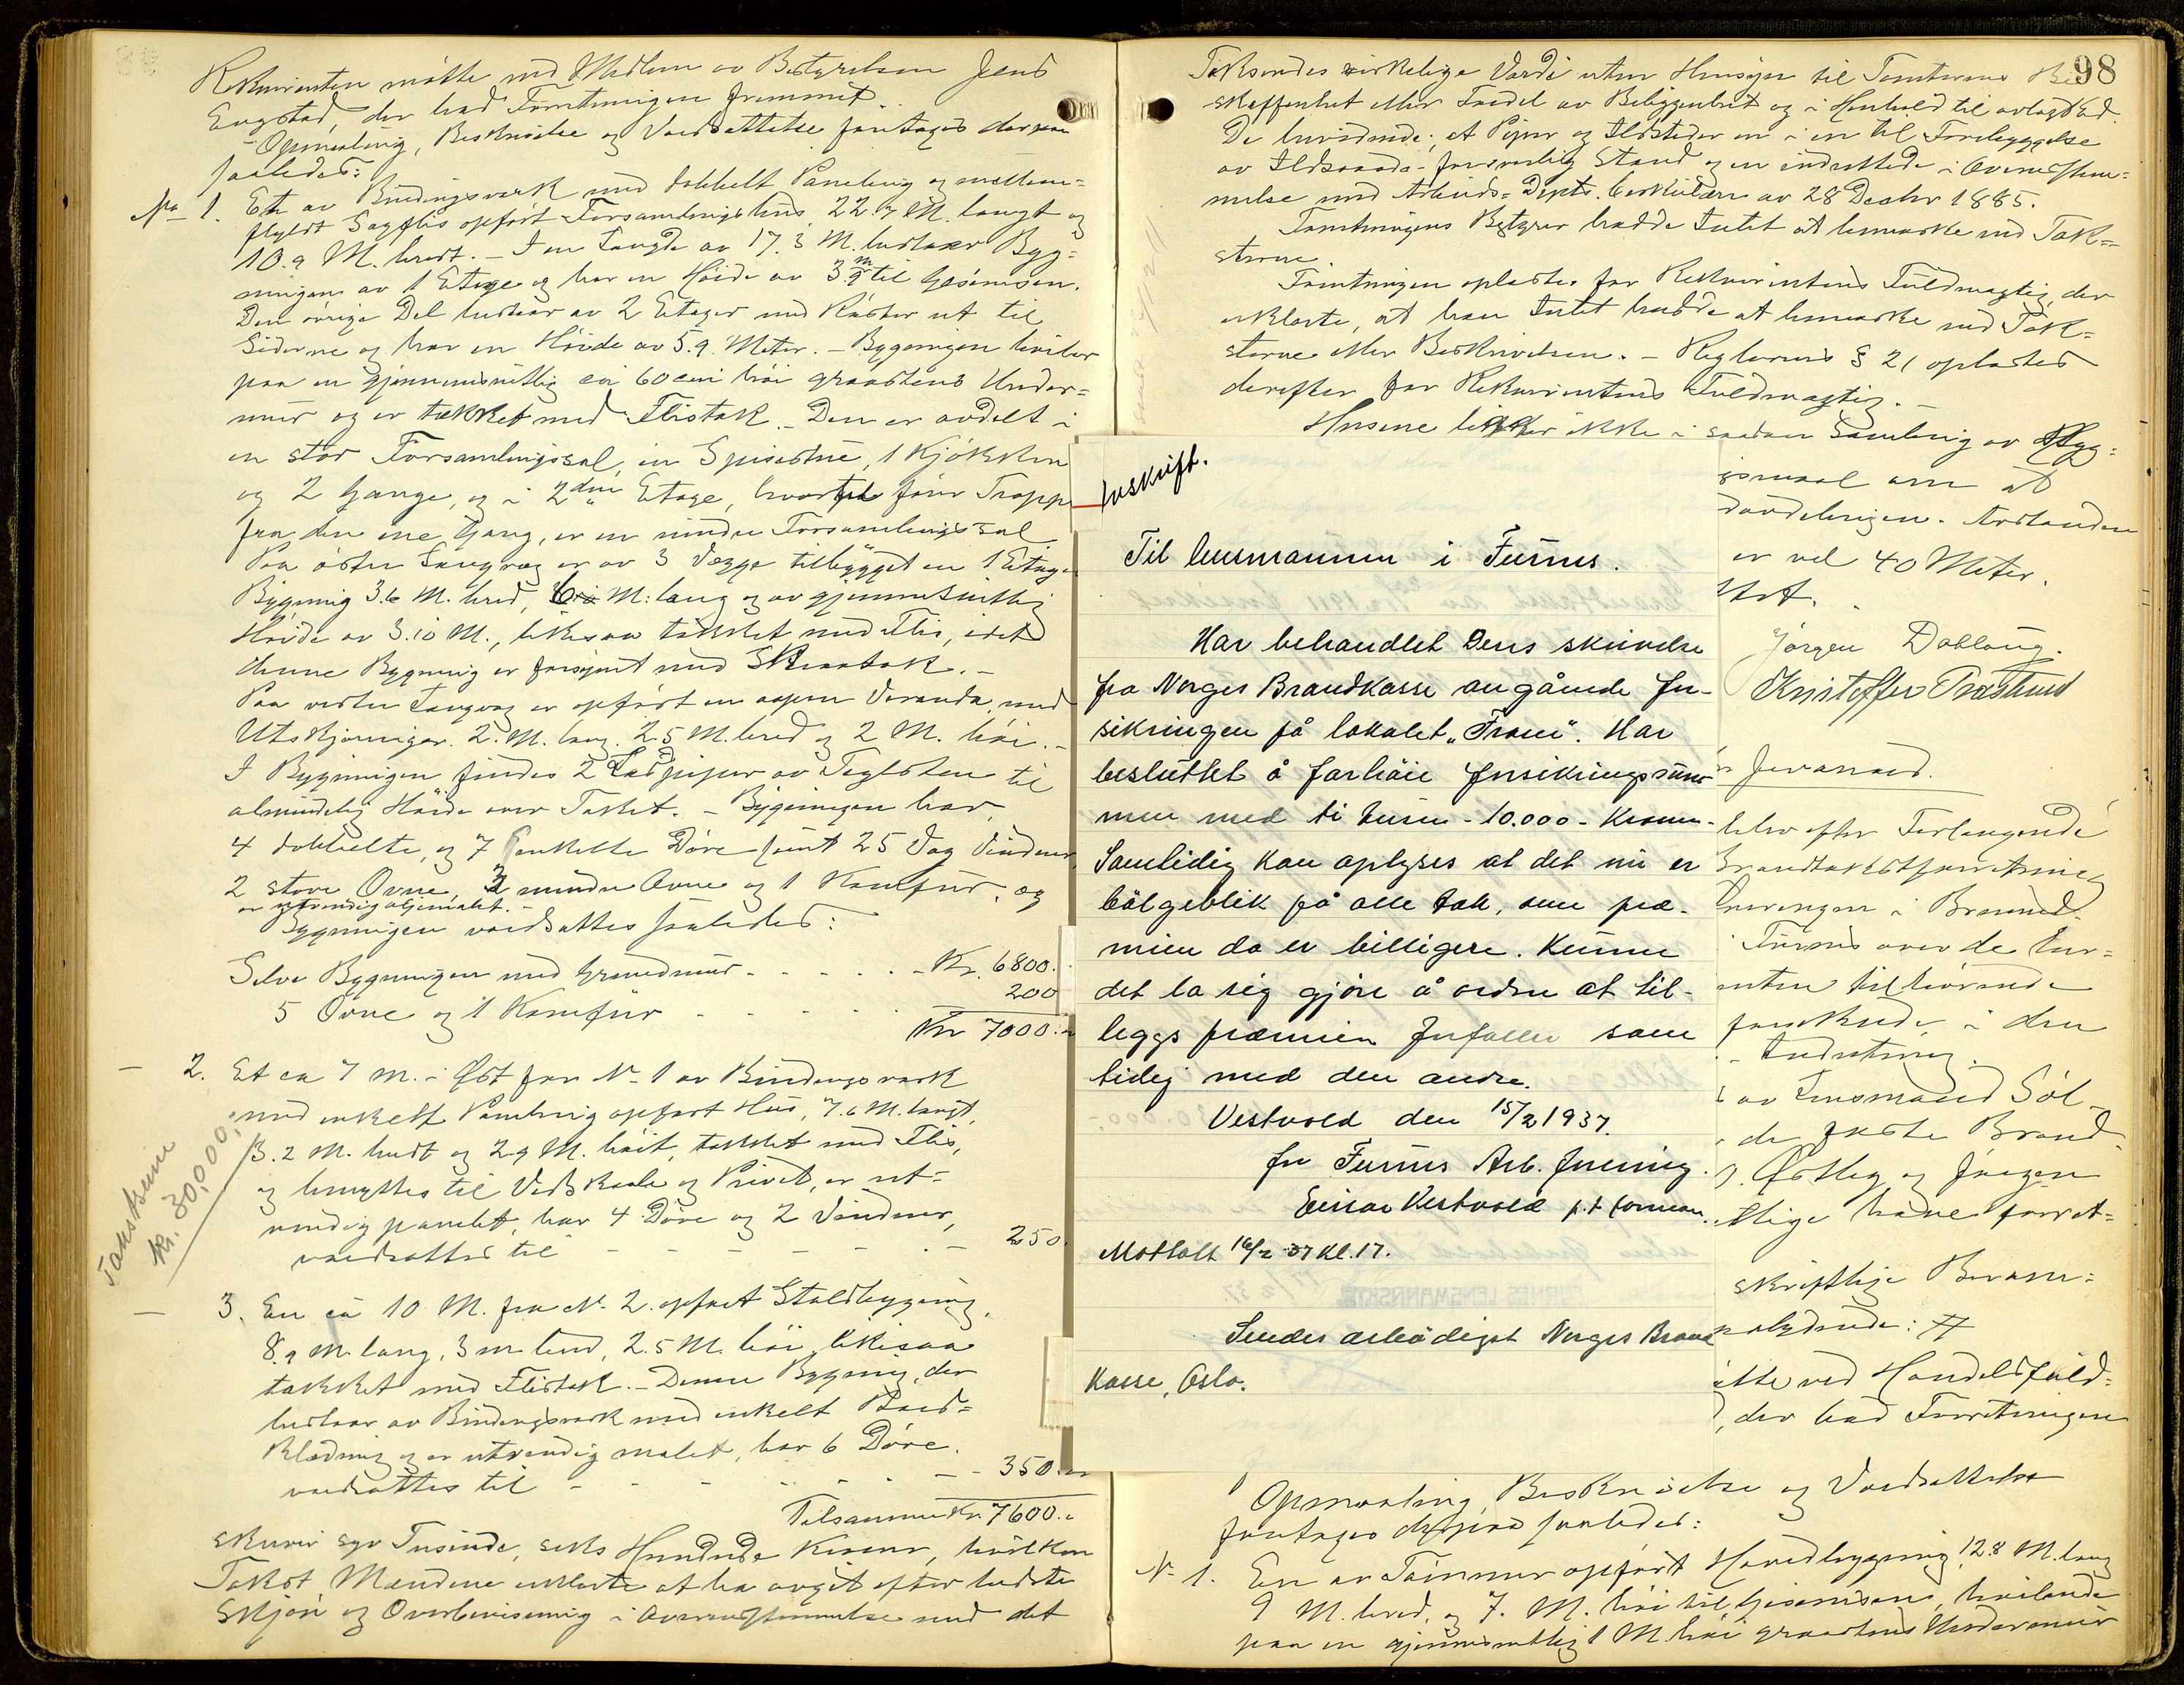 Rekvirenten møtte ved Medlem av Bestyrelsen Jens
Engstad, der bad Forretningen fremmet.
Opmaaling, Beskrivelse og Værdsættelse foretages derpaa
saaledes:
No 1. En av Bindingsverk med dobbelt Paneling og mellem=
fyldt Sagflis opført Forsamlingshus 22.7 M. langt og
10.9 M. bredt. – I en Længde av 17.3 M. bestaar Byg=
ningen av 1 Etage og har en Høide av 3.9 m til Gesimsen.
Den øvrige Del bestaar av 2 Etager med Røster ut til
Siderne og har en Høide av 5.9. Meter. – Bygningen hviler
paa en gjennemsnitlig ca 60 cm høi graastens Under=
mur og er tækket med Flistak. – Den er avdelt i
en stor Forsamlingssal, en Spisestue, 1 Kjøkken
og 2 Gange, og i 2den Etage, hvortil fører Trappe
fra den ene Gang, er en mindre Forsamlingssal.
Paa østre Langvæg er av 3 Vægge tilbygget en 1 Etages
Bygning 3.6 M. bred, M. lang og av gjennemsnitlig
Høide av 3.10 M., likesaa tækket med Flis, idet
denne Bygning er forsynt med Skraatak. –
Paa vestre Langvæg er opført en aapen Veranda, med
Utskjæringer. 2. M. lang. 2.5 M. bred og 2 M. høi. –
I Bygningen findes 2 Ladpiper av Teglsten til
almindelig Høide over Taket. – Bygningen har
4 dobbelte, og 7 enkelte Døre samt 25 Fag Vinduer
2 store Ovne, 3 mindre Ovne og 1 Komfur, og
er utvendig oljemalet. –
Bygningen værdsættes saaledes:
Selve Bygningen med Grundmur - - - - - Kr. 6800.
5 Ovne og 1 Komfur - - - - - 200
Kr 7000.
– 2. Et ca 7 M. i Øst fra No 1 av Bindingsværk
med enkelt Paneling opført Hus, 7.6 M. langt,
3.2 M. bredt og 2.9 M. høit, tækket med Flis,
og benyttes til Vedskaale og Privet, er ut=
vendig panelet, har 4 Døre og 2 Vinduer,
værdsættes til - - - - - - 250.
Takstsum
kr. 30,000,-
– 3. En ca 10 M. fra No 2. opført Staldbygning,
8.9 M. lang, 3 m bred, 2.5 M. høi, likesaa
tækket med Flistak. – Denne Bygning, der
bestaar av Bindingsværk med enkelt Bord=
klædning og er utvendig malet, har 6 Døre.
værdsættes til - - - - - - 350.
Tilsammen Kr. 7600.
skriver syv Tusinde, seks Hundrede Kroner, hvilken
Takst Mændene erklærte at ha avgit efter bedste
Skjøn og Overbevisning i Overensstemmelse med det
98
Taksendes virkelige Værdi uten Hensyn til Tomternes Be=
skaffenhet eller Fordel av Beliggenhet og i Henhold til avlagt Ed.
De bevidnede, at Piper og Ildsteder er i en til Forebyggelse
av Ildsvaade forsvarlig Stand og er indrettede i Overensstem=
melse med Arbeids=Depts. Cirkulære av 28 Decbr 1885.
Forretningens Bestyrer hadde Intet at bemærke ved Tak=
sterne.
Forretningen oplæstes for Rekvirentens Fuldmægtig, der
erklærte, at han Intet hadde at bemærke ved Tak=
sterne eller Beskrivelsen. – Reglernes § 21 oplæstes
derefter for Rekvirentens Fuldmægtig. –
Husene ligger ikke i saadan Samling av Byg=
gsmaal om at
Avstanden
er vel 40 Meter.
Jørgen Dobloug.
Kristoffer Træstund
Avskrift.
Til lensmannen i Furnes.
Har behandlet Deres skrivelse
fra Norges Brandkasse angående for-
sikringen på lokalet „Fram“. Har
besluttet å forhöie forsikringssum-
men med ti tusen - 10.000 - Kroner.
Samtidig kan oplyses at det nu er
bölgeblik på alle tak, som præ-
mien da er billigere. Kunne
det la sig gjöre å ordne at til-
leggs præmien forfaller sam
tidig med den andre.
Vestvold den 15/2 1937.
for Furnes Arb. forening.
Einar Vestvold p.t. forman.
Mottatt 16/2 37 Kl. 17.
Sendes ærbödigst Norges Brand
Kasse, Oslo.
efter Forlangende
Brandtakstforretning
i Brumund=
Furnes over de
tilhørende
i den
Indretning.
av Lensmand Söl
de faste Brand
Østby og Jørgen
tlige have forret=
skriftlige Beram=
lydende: #
ved Handelsfuld=
, der bad Forretningen
Opmaaling, Beskrivelse og Værdsættelse
foretages derpaa saaledes:
No 1. En av Tømmer opført Hovedbygning, 12.8 M. lang
9 M. bred, og 7. M. høi til Gesimsens, hvilende
paa en gjennemsnitlig 1 M. høi graastens Undermur